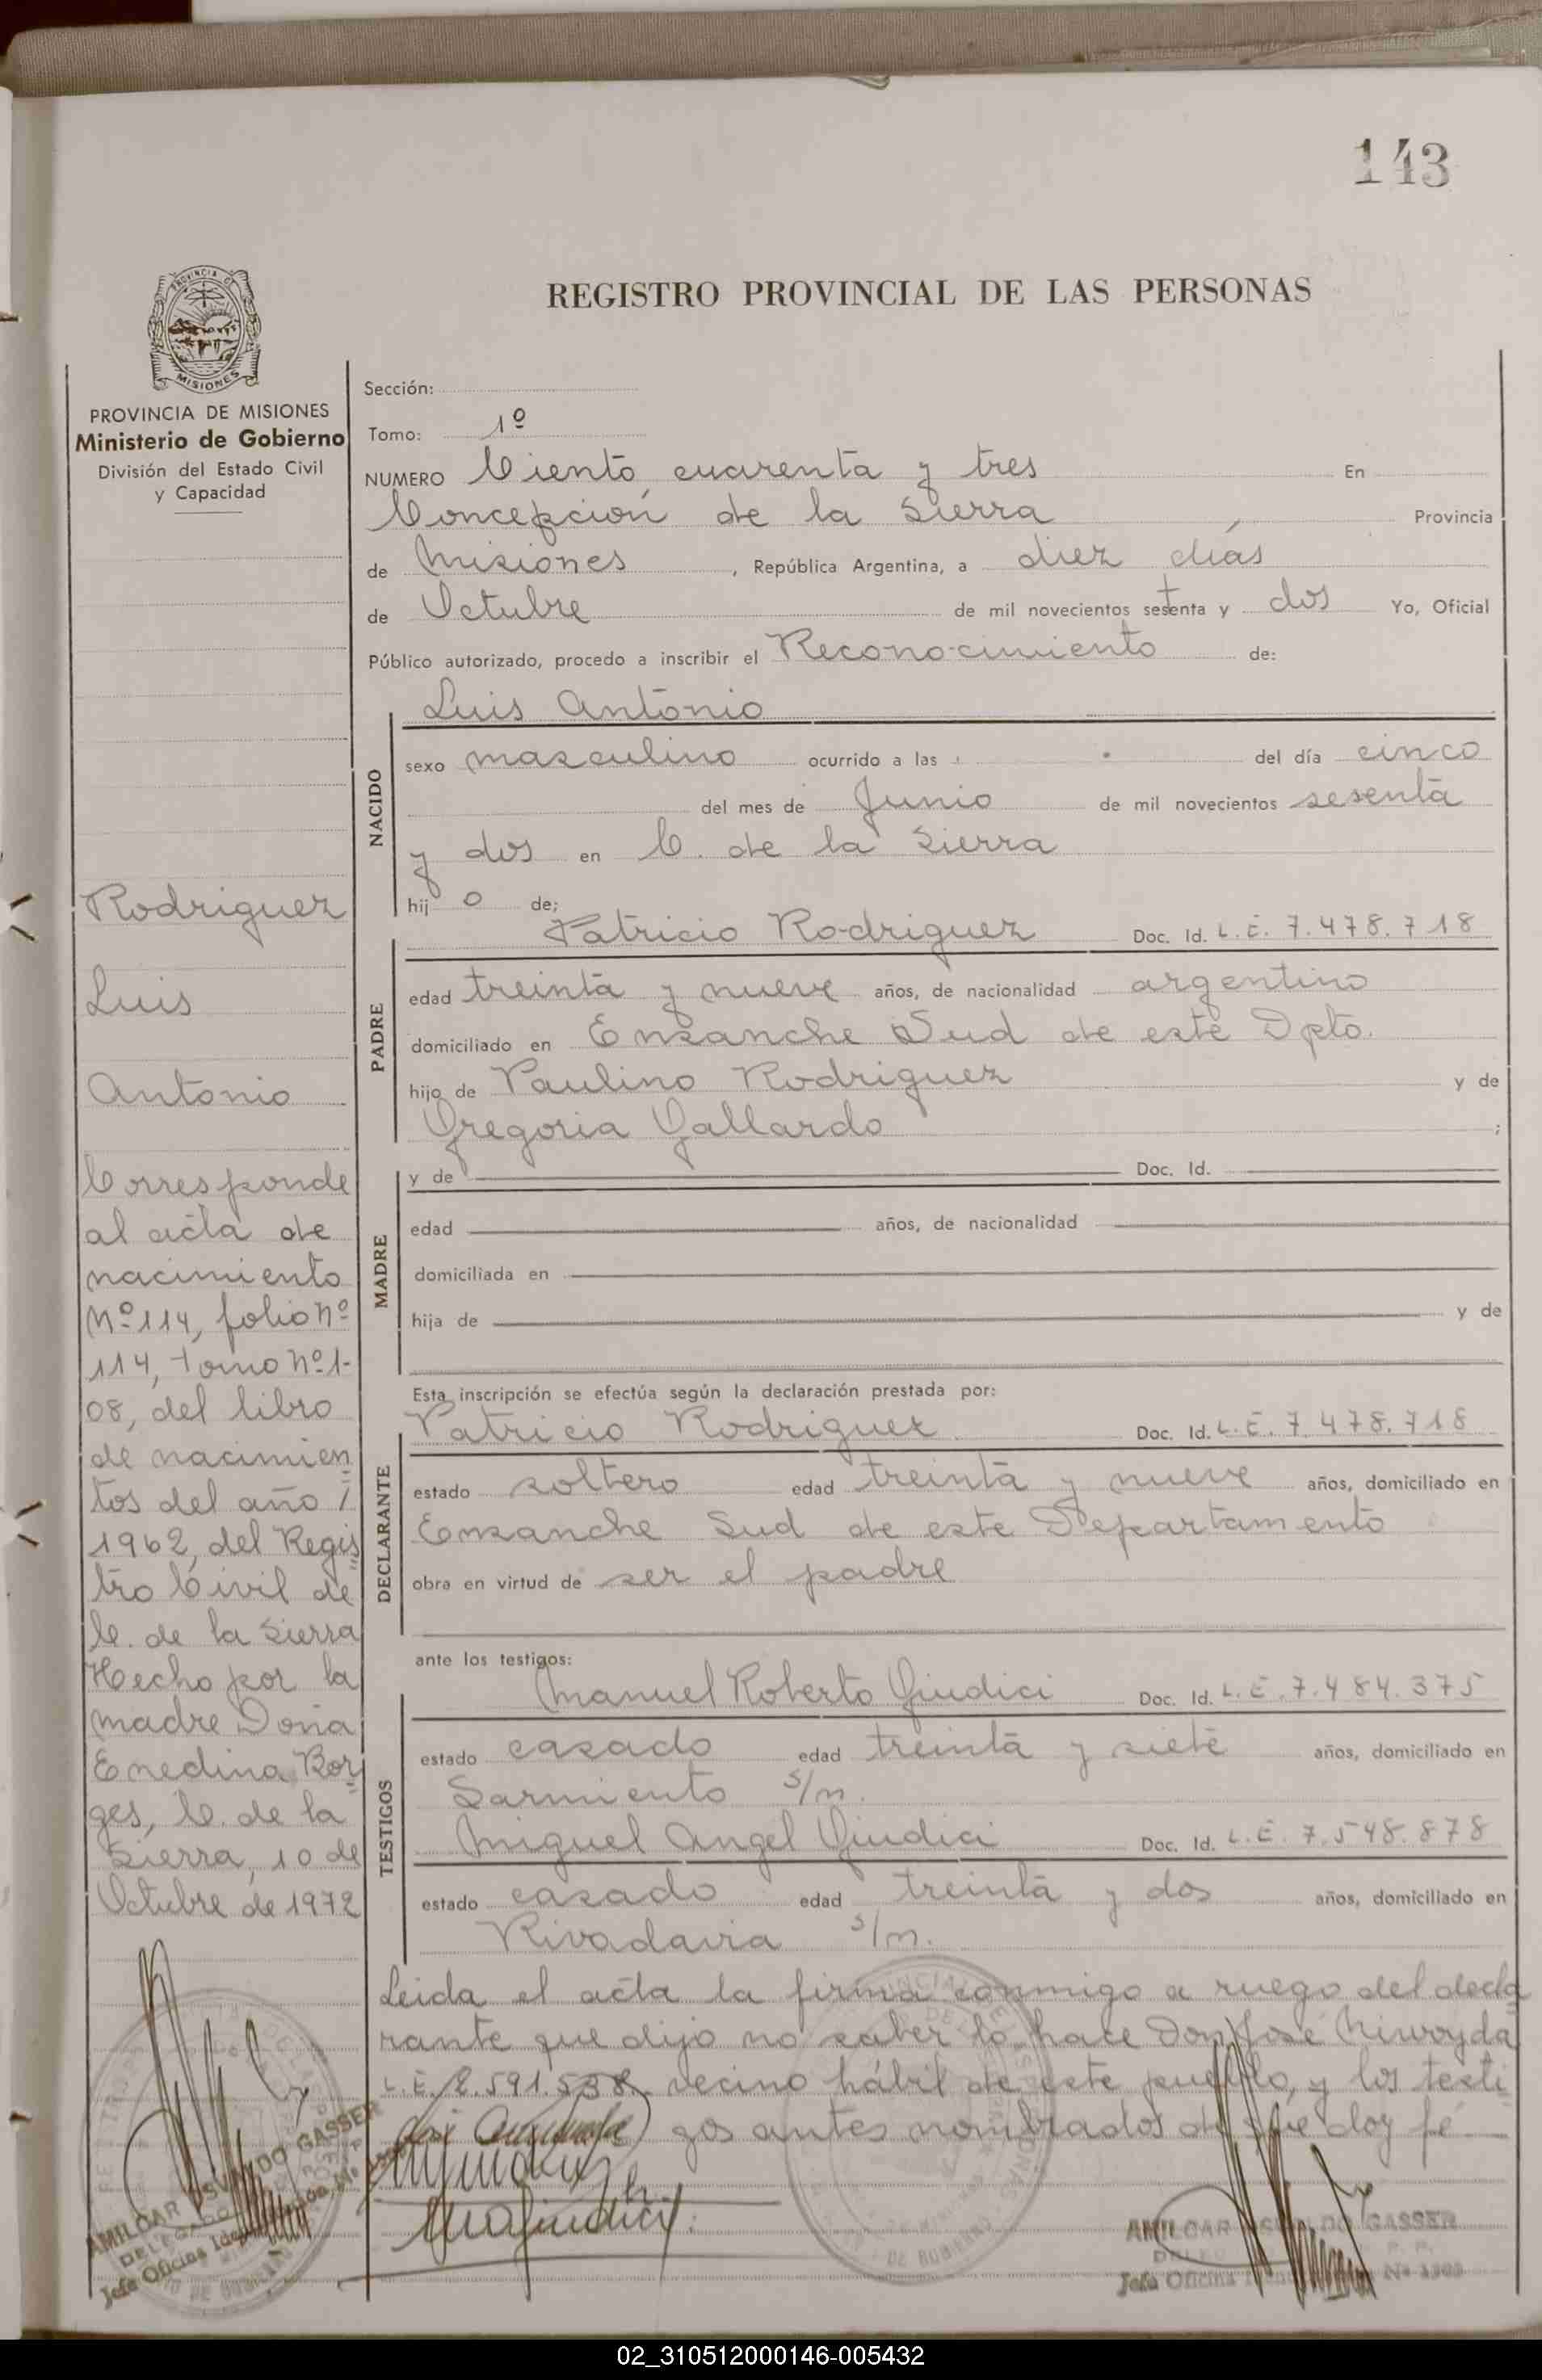 143
REGISTRO PROVINCIAL DE LAS PERSONAS
PROVINCIA DE
MISIONES
PROVINCIA DE MISIONES
Ministerio de Gobierno
División del Estado Civil
y Capacidad
Rodriguez
Luis
Antonio
Corresponde
al acta de
nacimiento
Nº 114, folio Nº
114, Tomo Nº 1-
08, del libro
de nacimien
tos del año /
1962, del Regis
tro Civil de
C. de la Sierra
Hecho por la
madre Doña
Enedina Bor
ges, C. de la
Sierra, 10 de
Octubre de 1972
Sección:
Tomo: 1º
NUMERO Ciento cuarenta y tres En
Concepción de la Sierra, Provincia
de Misiones, República Argentina, a diez días
de Octubre de mil novecientos setenta y dos Yo, Oficial
Público autorizado, procedo a inscribir el Reconocimiento de:
Luis Antonio
NACIDO
sexo masculino ocurrido a las del día cinco
del mes de Junio de mil novecientos sesenta
y dos en C. de la Sierra
hijo de;
PADRE
Patricio Rodriguez Doc. Id. L.E. 7.478.718
edad treinta y nueve años, de nacionalidad argentino
domiciliado en Ensanche Sud de este Dpto.
hijo de Paulino Rodriguez y de
Gregoria Gallardo ;
MADRE
y de Doc. Id.
edad años, de nacionalidad
domiciliada en
hija de y de
Esta inscripción se efectúa según la declaración prestada por:
DECLARANTE
Patricio Rodriguez Doc. Id. L.E. 7.478.718
estado soltero edad treinta y nueve años, domiciliado en
Ensanche Sud de este Departamento
obra en virtud de ser el padre
ante los testigos:
TESTIGOS
Manuel Roberto Giudici Doc. Id. L.E. 7.484.375
estado casado edad treinta y siete años, domiciliado en
Sarmiento s/n.
Miguel Angel Giudici Doc. Id. L.E. 7.548.878
estado casado edad treinta y dos años, domiciliado en
Rivadavia s/n.
Leida el acta la firma conmigo a ruego del decla
rante que dijo no saber lo hace Don José
L.E. 591.538 vecino hábil de este pueblo, y los testi
gos antes nombrados de que doy fé
AMILCAR OSVALDO GASSER
Jefe Oficina
AMILCAR OSVALDO GASSER
Jefe Oficina
02_310512000146-005432